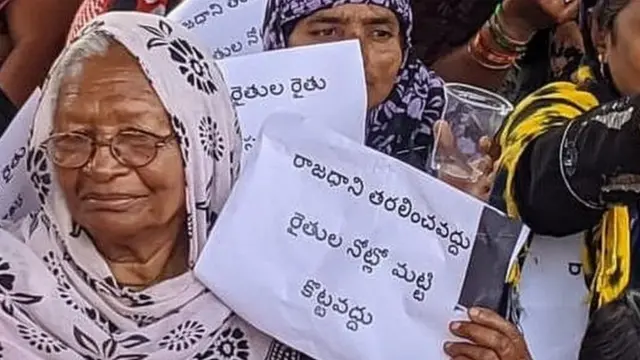 రాజధాని
రైతుల
రైతుల రైతు
రాజధాని తరలించవద్దు
రైతుల నోట్లో మట్టి
కొట్టవద్దు